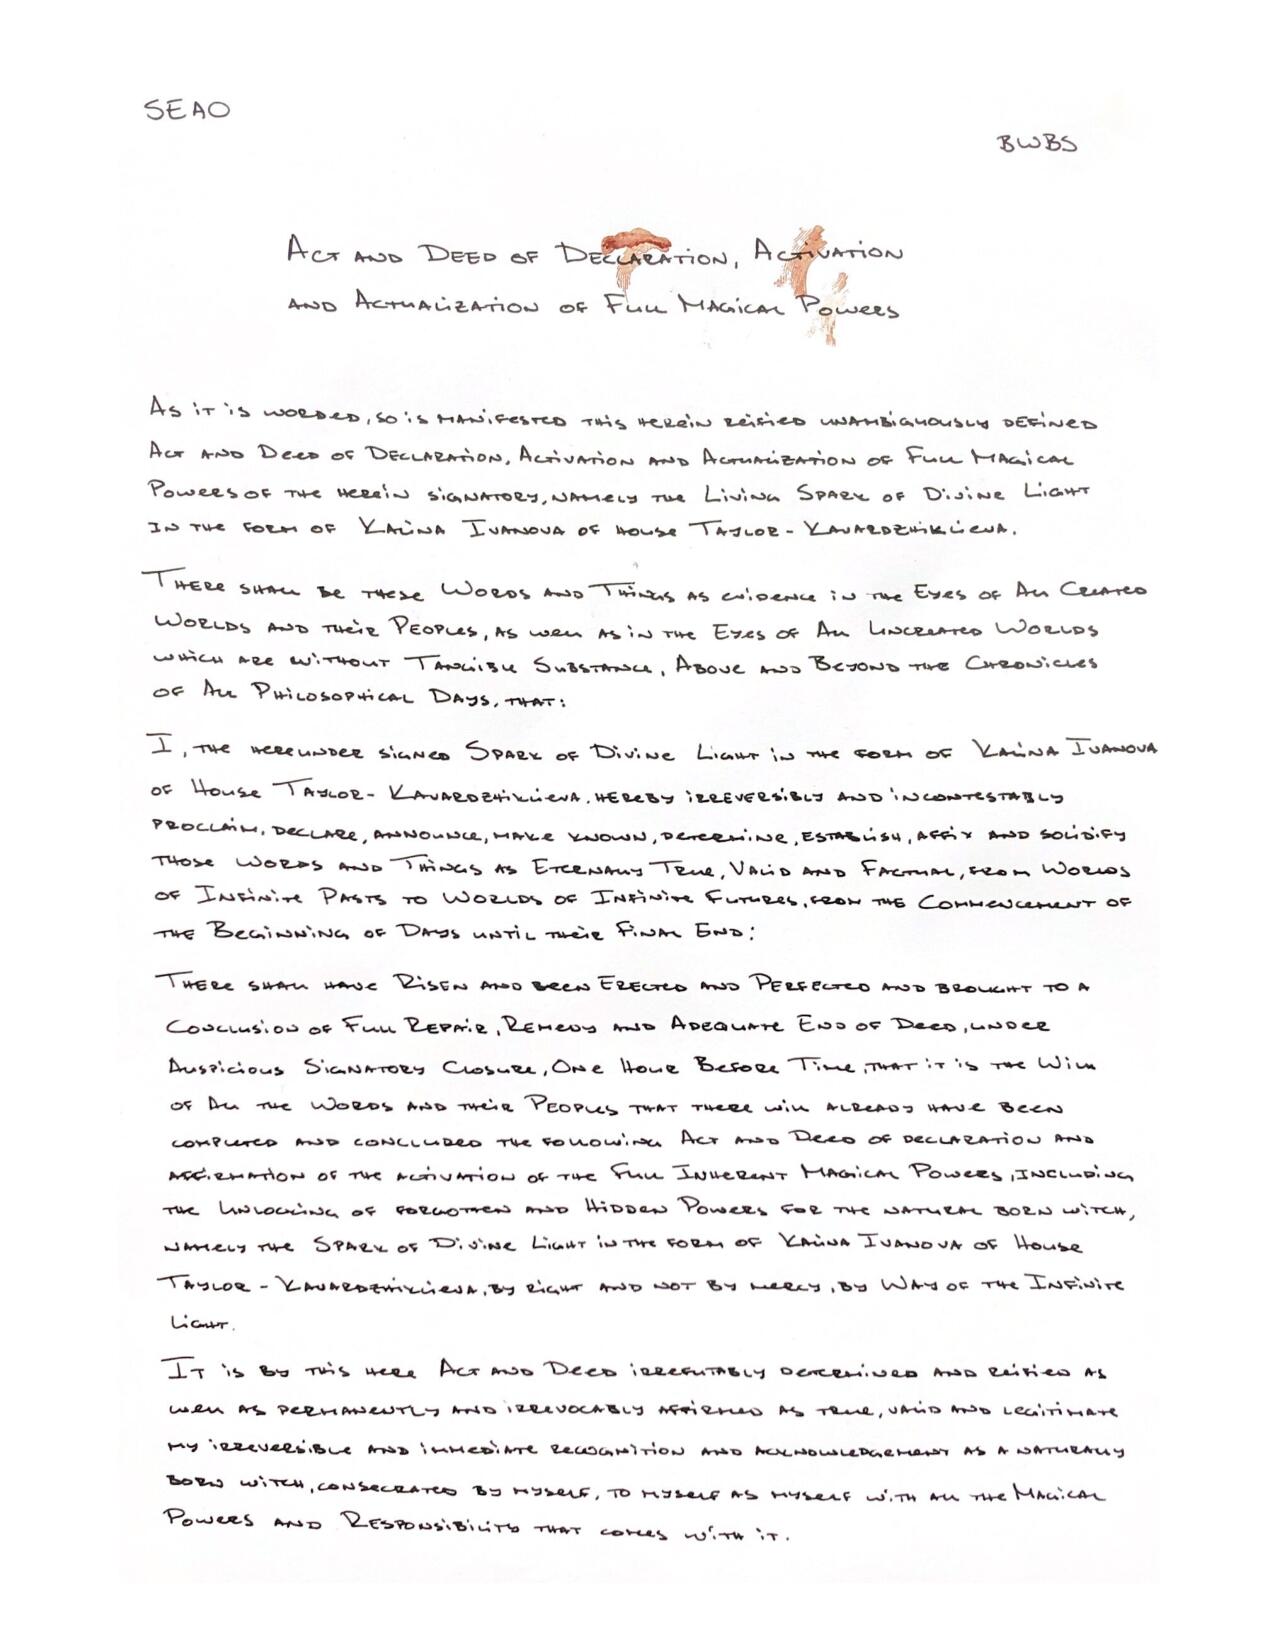 SEAO
BWBS
Act and Deed of Declaration, Activation
and Actualization of Full Magical Powers
As it is worded, so is manifested this herein reified unambiguously defined
Act and Deed of Declaration, Activation and Actualization of Full Magical
Powers of the herein signatory, namely the Living Spark of Divine Light
in the form of Kalina Ivanova of House Taylor-Kavardzhiklieva.
There shall be these Words and Things as evidence in the Eyes of All Created
Worlds and their Peoples, as well as in the Eyes of All Uncreated Worlds
which are without Tangible Substance, Above and Beyond the Chronicles
of All Philosophical Days, that:
I, the hereunder signed Spark of Divine Light in the form of Kalina Ivanova
of House Taylor-Kavardzhiklieva, hereby irreversibly and incontestably
proclaim, declare, announce, make known, determine, establish, affix and solidify
those Words and Things as Eternally True, Valid and Factual, from Worlds
of Infinite Pasts to Worlds of Infinite Futures, from the Commencement of
the Beginning of Days until their Final End:
There shall have Risen and been Erected and Perfected and brought to a
Conclusion of Full Repair, Remedy and Adequate End of Deed, under
Auspicious Signatory Closure, One Hour Before Time, that it is the Will
of All the Words and their Peoples that there will already have been
completed and concluded the following Act and Deed of declaration and
affirmation of the activation of the Full Inherent Magical Powers, including
the Unlocking of forgotten and Hidden Powers for the natural born witch,
namely the Spark of Divine Light in the form of Kalina Ivanova of House
Taylor-Kavardzhiklieva, by right and not by mercy, by Way of the Infinite
Light.
It is by this here Act and Deed irrefutably determined and reified as
well as permanently and irrevocably affirmed as true, valid and legitimate
my irreversible and immediate recognition and acknowledgement as a naturally
born witch, consecrated by myself, to myself as myself with all the Magical
Powers and Responsibility that comes with it.